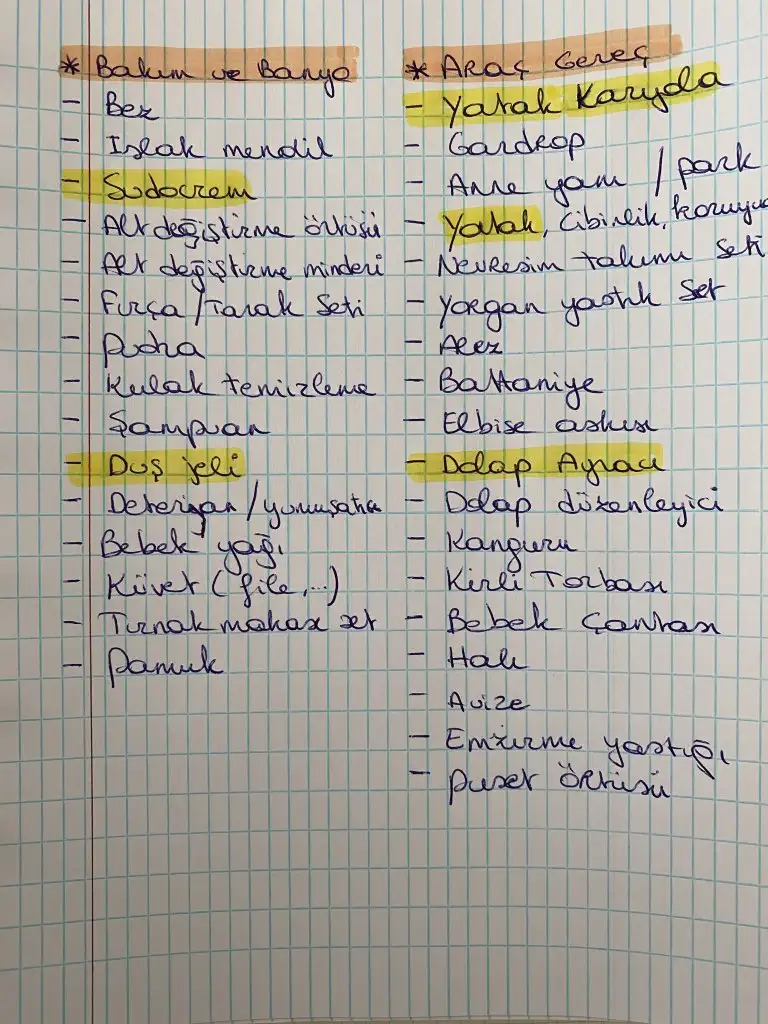 * Bakım ve Banyo
- Bez
- Islak mendil
- Sudocrem
- Alt değiştirme örtüsü
- Alt değiştirme minderi
- Fırça / Tarak Seti
- Pudra
- Kulak temizleme
- Şampuan
- Duş jeli
- Deterjan / yumuşatıcı
- Bebek yağı
- Küvet (file, ...)
- Tırnak makası set
- Pamuk
* Araç Gereç
- Yatak Karyola
- Gardrop
- Anne yanı / park
- Yatak, Cibinlik, koruyucu
- Nevresim takımı seti
- Yorgan yastık set
- Alez
- Battaniye
- Elbise askısı
- Dolap Ayracı
- Dolap düzenleyici
- Kanguru
- Kirli Torbası
- Bebek Çantası
- Halı
- Avize
- Emzirme yastığı
- Puset Örtüsü